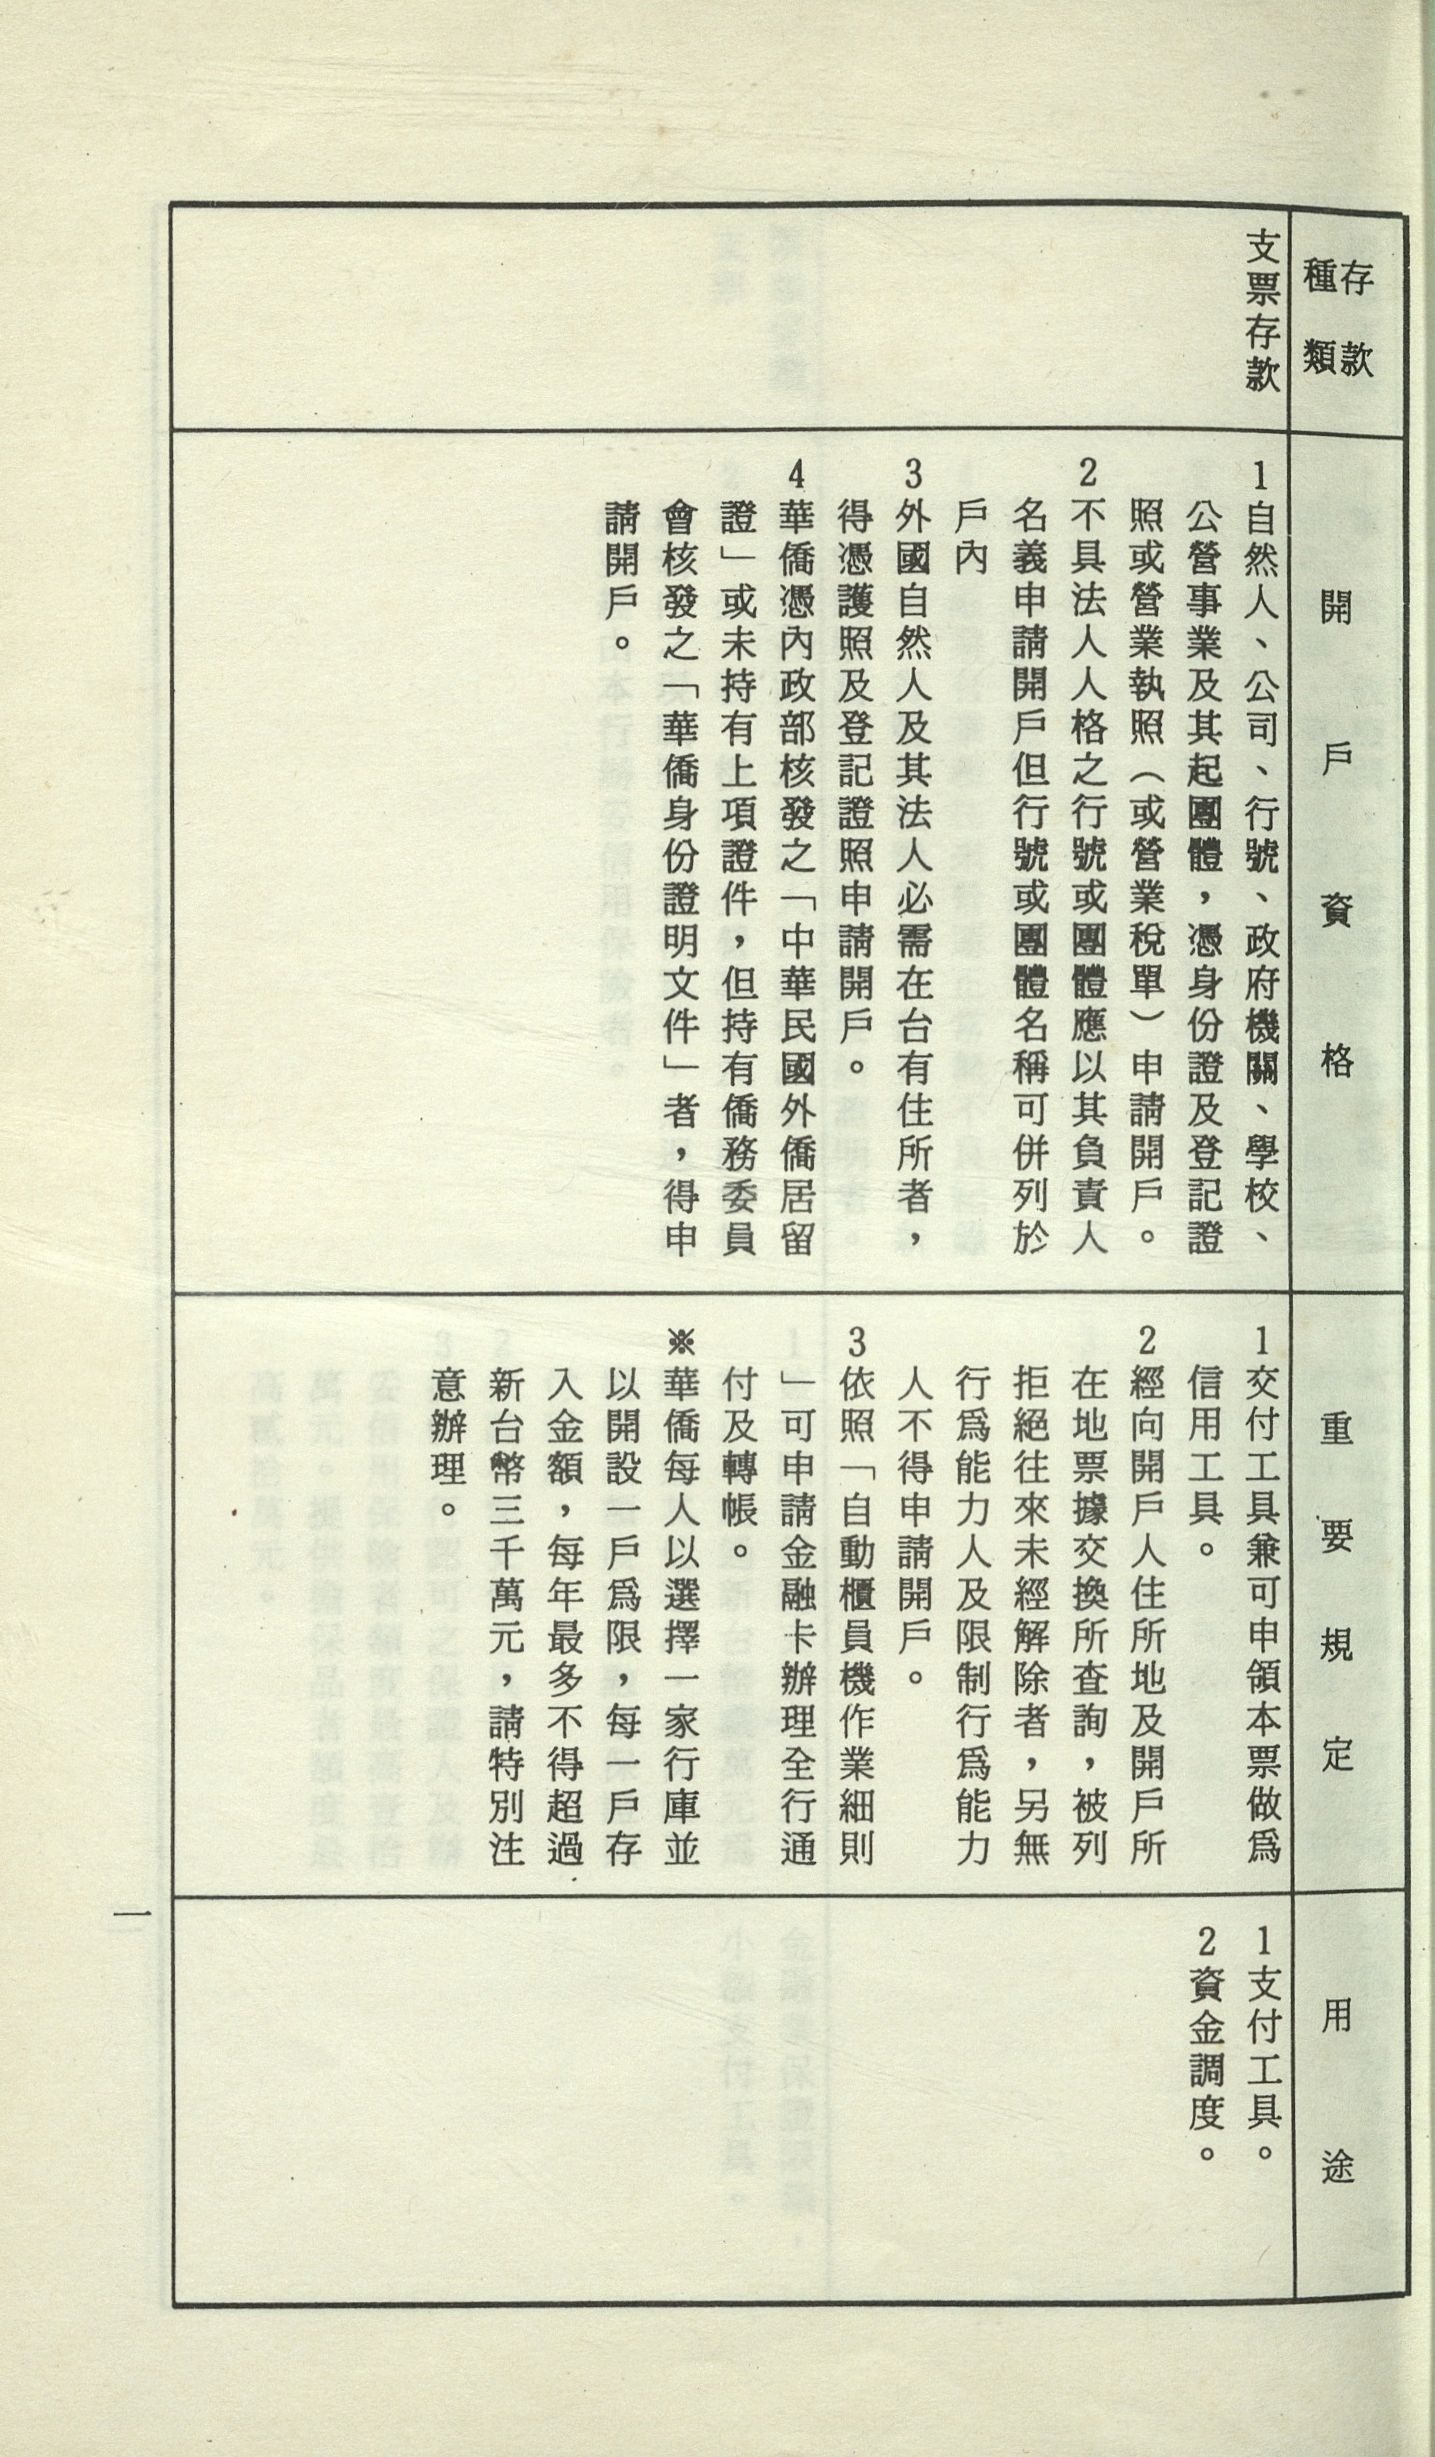 存款
種類
支票存款
開戶資格
1自然人、公司、行號、政府機關、學校、
公營事業及其起團體，憑身份證及登記證
照或營業執照（或營業稅單）申請開戶。
2不具法人人格之行號或團體應以其負責人
名義申請開戶但行號或團體名稱可併列於
戶內
3外國自然人及其法人必需在台有住所者，
得憑護照及登記證照申請開戶。
4華僑憑內政部核發之「中華民國外僑居留
證」或未持有上項證件，但持有僑務委員
會核發之「華僑身份證明文件」者，得申
請開戶。
重要規定
1交付工具兼可申領本票做爲
信用工具。
2經向開戶人住所地及開戶所
在地票據交換所查詢，被列
拒絕往來未經解除者，另無
行爲能力人及限制行爲能力
人不得申請開戶。
3依照「自動櫃員機作業細則
」可申請金融卡辦理全行通
付及轉帳。
※華僑每人以選擇一家行庫並
以開設一戶爲限，每一戶存
入金額，每年最多不得超過
新台幣三千萬元，請特別注
意辦理。
用途
1支付工具。
2資金調度。
一